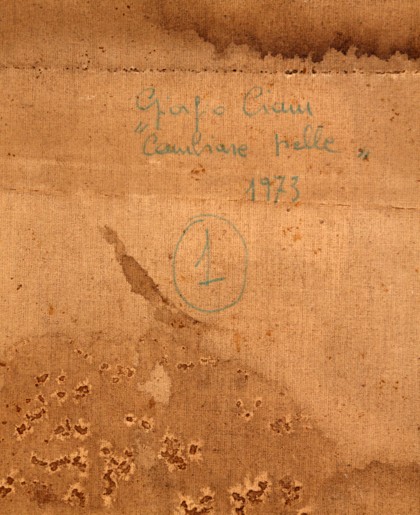 Giorgio Ciam
"Cambiare pelle"
1973
1